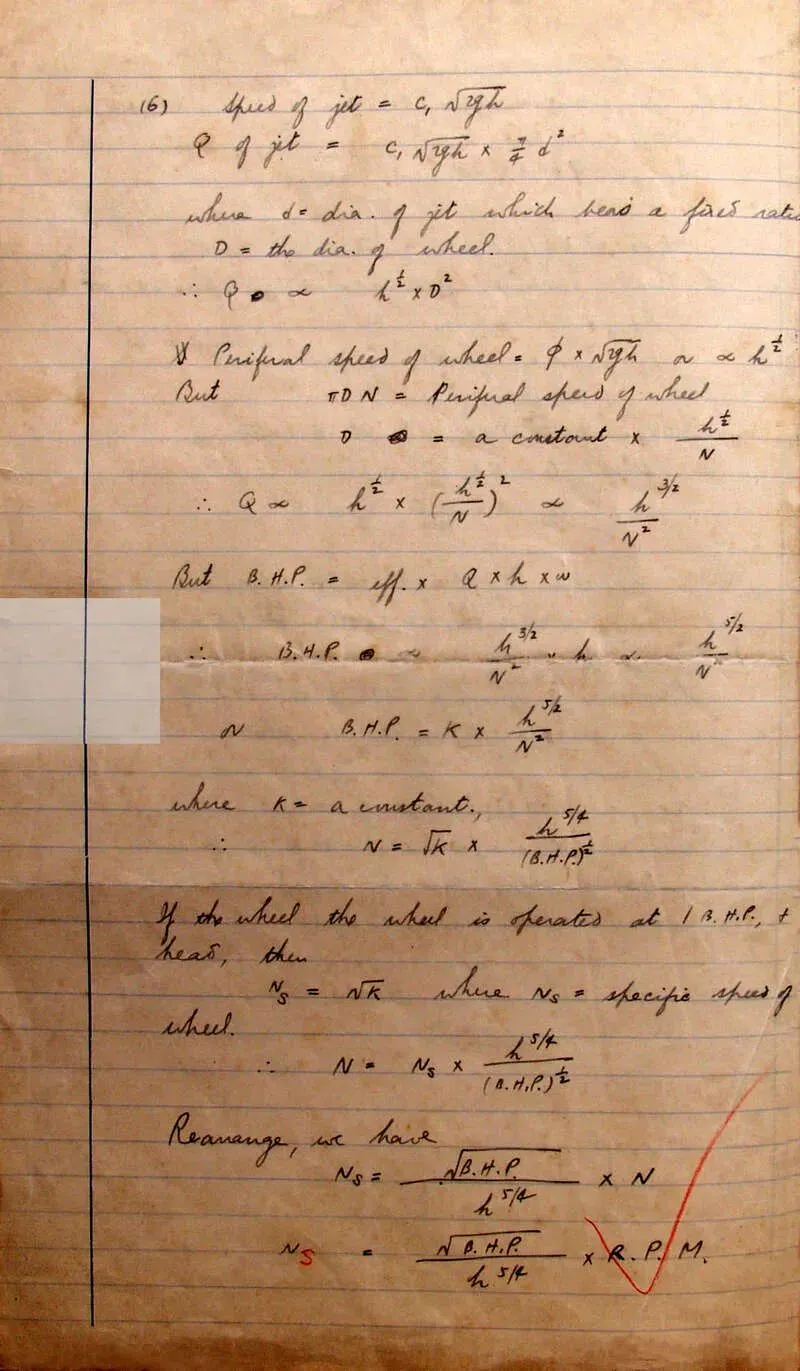 (6) Speed of jet = c₁ √2gh
Q of jet = c₁ √2gh × π/4 d²
where d = dia. of jet which bears a fixed ratio
D = the dia. of wheel.
∴ Q ∝ h^½ × D²
Periferal speed of wheel = φ × √2gh or ∝ h^½
But πDN = Periferal speed of wheel
D = a constant × h^½/N
∴ Q ∝ h^½ × (h^½/N)² ∝ h^3/2/N²
But B.H.P. = eff. × Q × h × w
∴ B.H.P. ∝ h^3/2/N² × h ∝ h^5/2/N²
or B.H.P. = K × h^5/2/N²
where K = a constant.,
∴ N = √K × h^5/4/(B.H.P.)^½
If the wheel the wheel is operated at 1 B.H.P., +
head, then
Ns = √K where Ns = specific speed of
wheel.
∴ N = Ns × h^5/4/(B.H.P.)^½
Rearange, we have
Ns = √B.H.P./h^5/4 × N
NS = √B.H.P./h^5/4 × R.P.M.